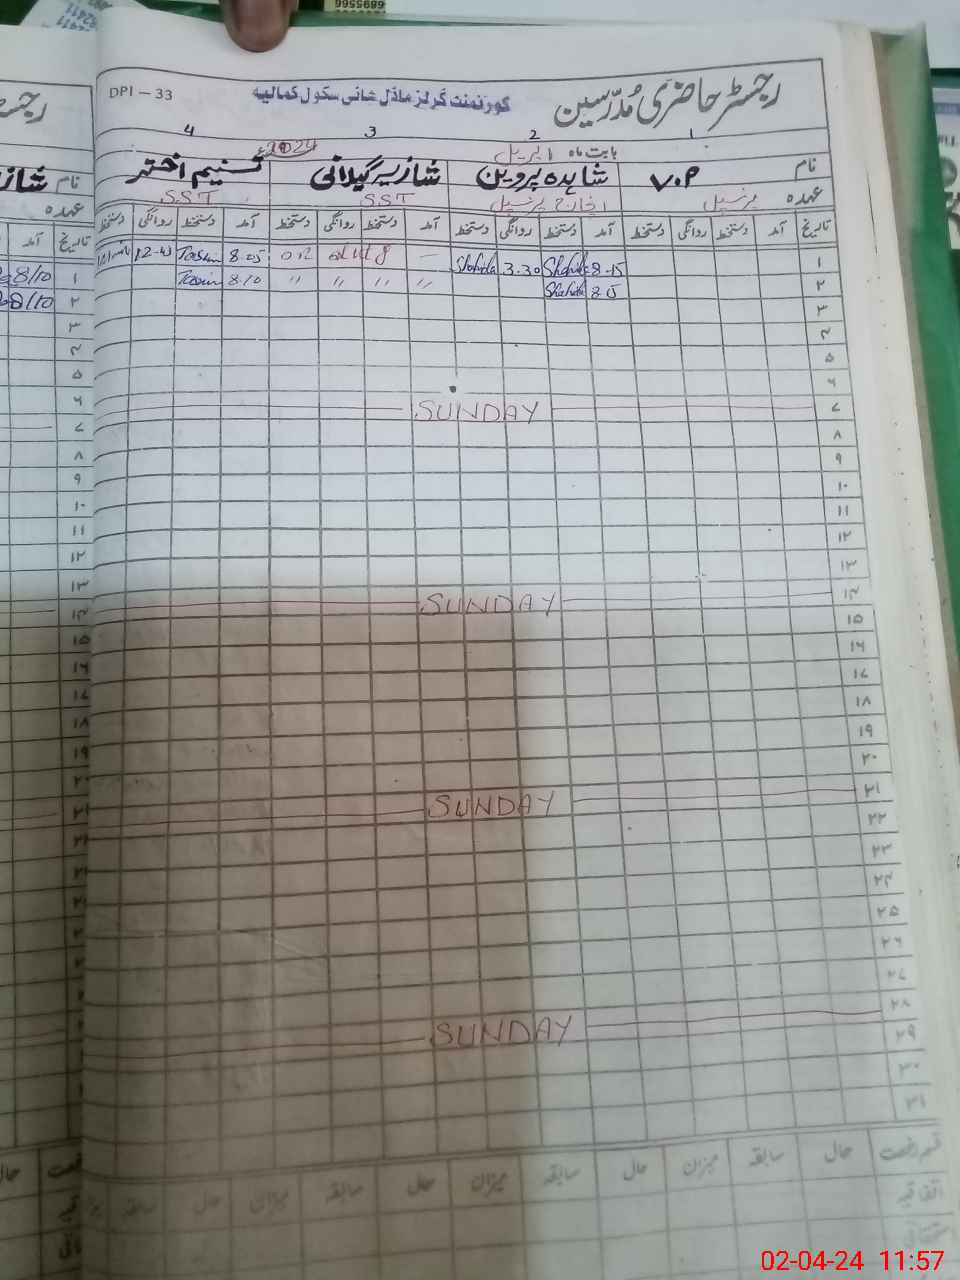 رجسٹر حاضری مُدرّسین
گورنمنٹ گرلز ماڈل ہائی سکول کمالیہ
DPI – 33
1 2 3 4
بابت ماہ اپریل 2024ء
نام V.P شاہدہ پروین شازیہ گیلانی تسنیم اختر
عہدہ پرنسپل انچارج پرنسپل SST SST
تاریخ آمد دستخط روانگی دستخط آمد دستخط روانگی دستخط آمد دستخط روانگی دستخط آمد دستخط روانگی دستخط
۱ 8-15 Shahida 3.30 Shahida — 8-05 Tasnim 12-43
۲ 8-15 Shahida 〃 〃 〃 〃 8-10 Tasnim
۳
۴
۵
۶
۷ SUNDAY
۸
۹
۱۰
۱۱
۱۲
۱۳
۱۴ SUNDAY
۱۵
۱۶
۱۷
۱۸
۱۹
۲۰
۲۱ SUNDAY
۲۲
۲۳
۲۴
۲۵
۲۶
۲۷
۲۸ SUNDAY
۲۹
۳۰
۳۱
قسم رخصت حال سابقہ میزان حال سابقہ میزان حال سابقہ میزان حال سابقہ
اتفاقیہ
استحقاقی
نام
عہدہ
تاریخ آمد
۱ 8/10
۲ 8/10
۳
۴
۵
۶
۷
۸
۹
۱۰
۱۱
۱۲
۱۳
۱۴
۱۵
۱۶
۱۷
۱۸
۱۹
02-04-24 11:57